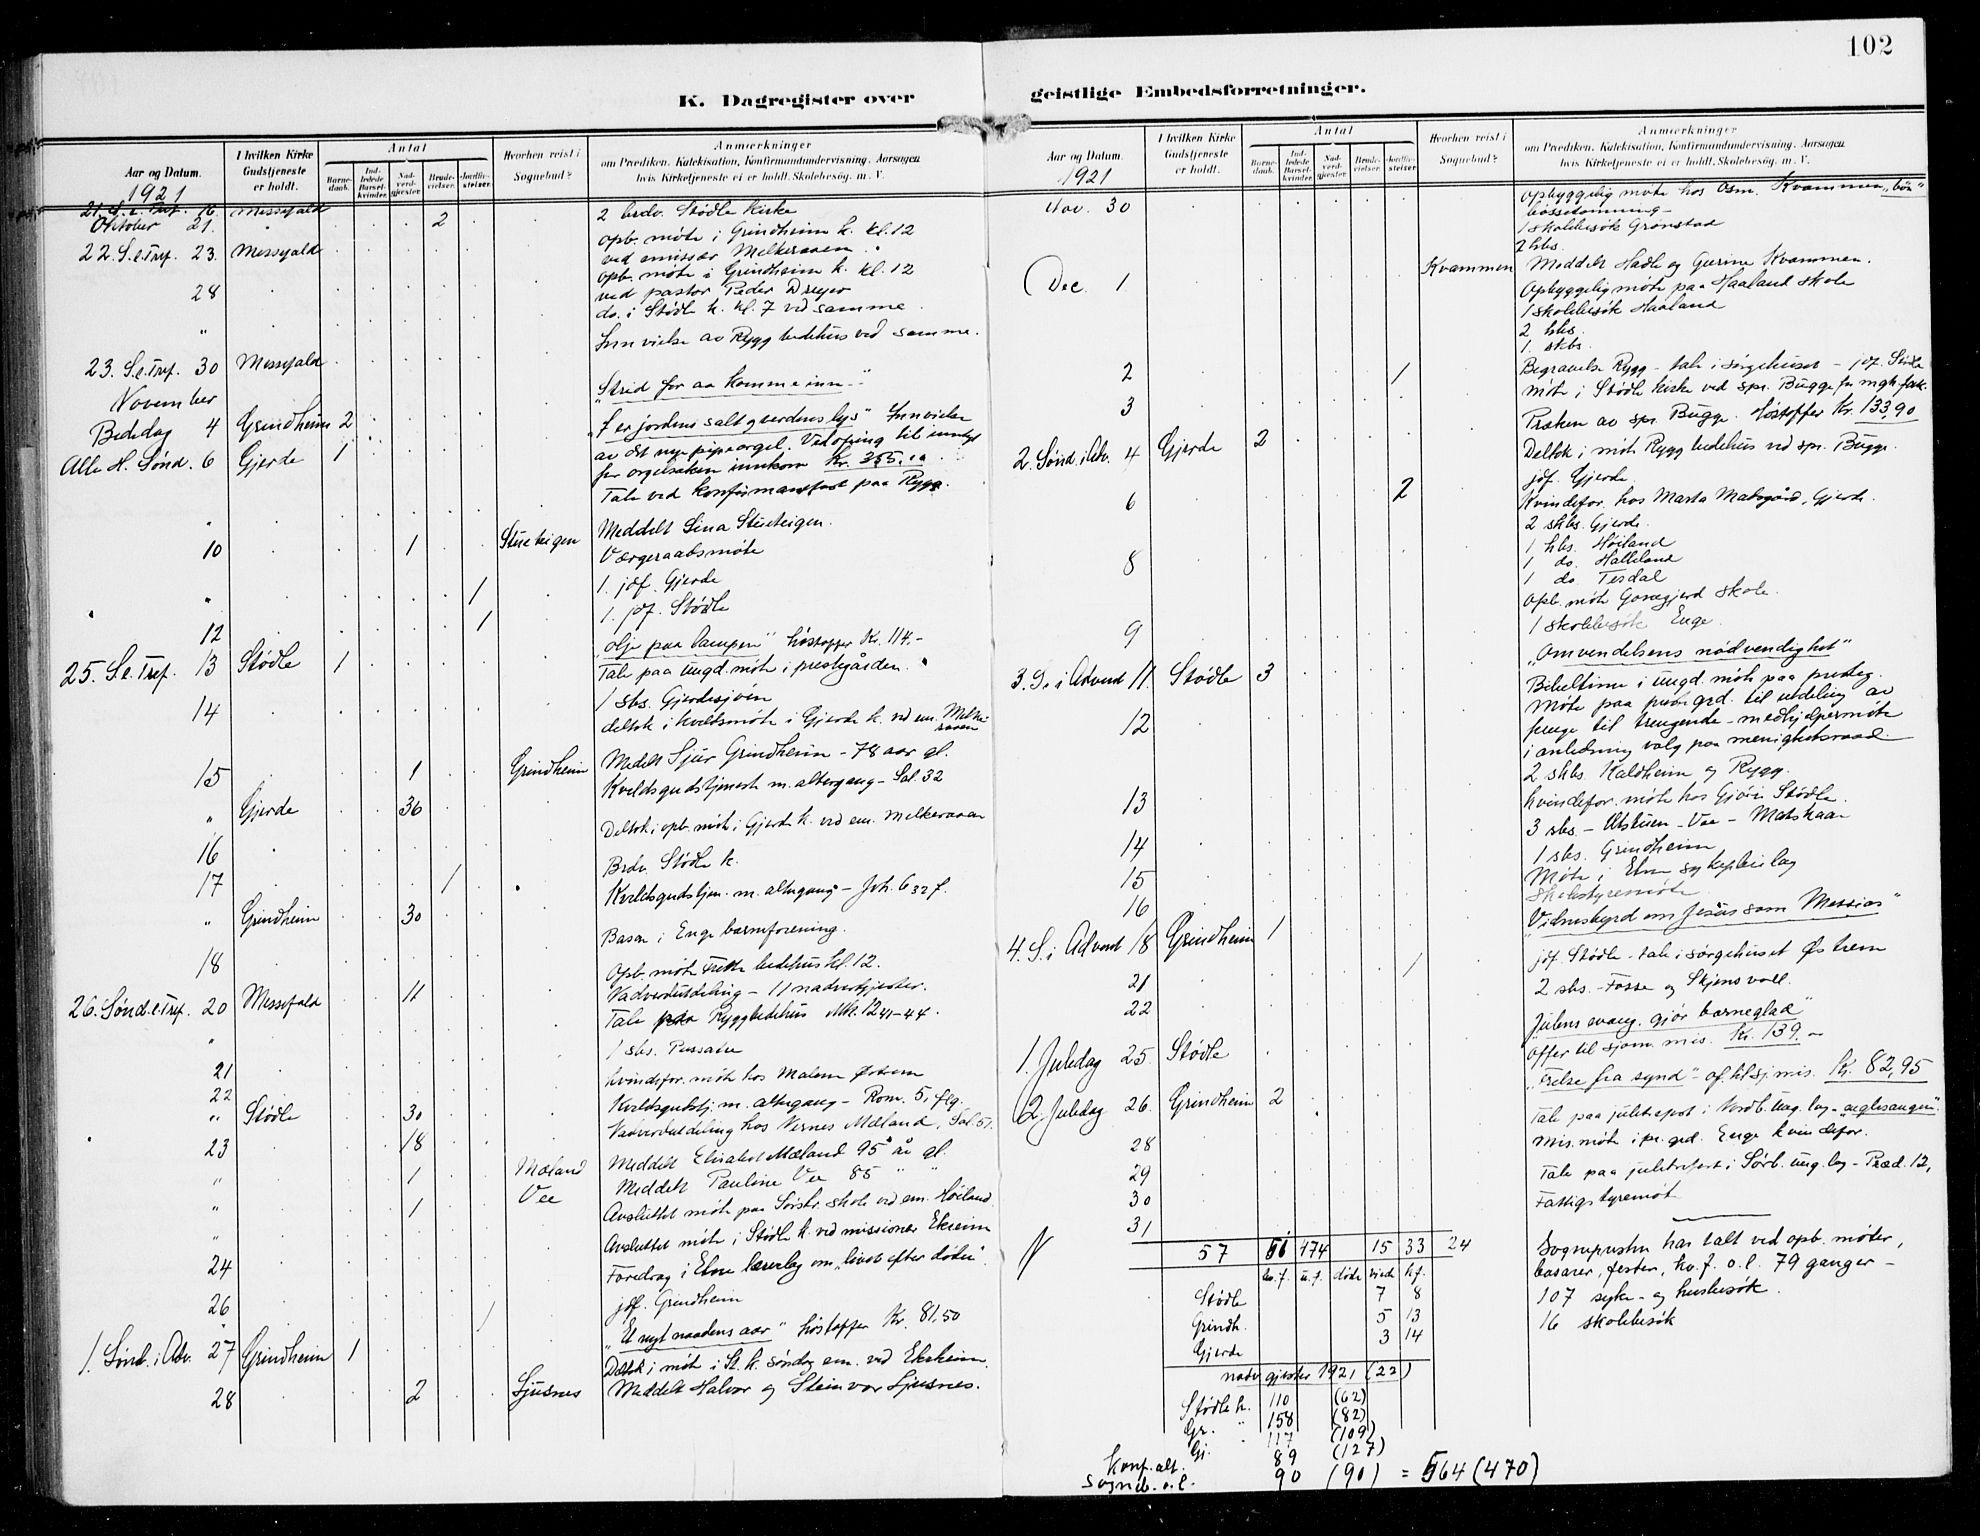 102
K. Dagregister over geistlige Embedsforretninger.
Aar og Datum.
I hvilken Kirke Gudstjeneste er holdt.
Antal
Barnedaab.
Indledede Barselkvinder.
Nadverdgjæster.
Brudevielser.
Jordfæstelser.
Hvorhen reist i Sognebud?
Anmerkninger
om Prædiken, Katekisation, Konfirmandundervisning, Aarsagen
hvis Kirketjeneste ei er holdt, Skolebesøg, m. V.
1921
21. S. e. Tref. 16. Messefald
Oktober 21. 2 2 brdv. Stødle Kirke
22. S. e. Tref. 23. Messefald opb. møte i Grindheim k. kl. 12
ved emissær Melkeraaen.
28 opb. møte i Grindheim k. kl. 12
ved pastor Peder Dreyer
" do. i Stødle k. kl. 7 ved samme.
Innvielse av Rygg bedehus ved samme.
23. S. e. Tref. 30 Messefald
November "Strid for aa komme inn"
Bededag 4 Grindheim 2 "I er jordens salt og verdens lys" Innvielse
Alle H. Sønd. 6 Gjerde 1 av det nye pipeorgel. Ved ofring til inntegt
for orgelsaken innkom Kr. 355,00
" Tale ved konfirmantfest paa Rygg.
10 1 Stueteigen Meddelt Sina Stueteigen.
Værgeraadsmøte
" 1 1. jdf. Gjerde
12 1 1. jdf. Stødle
25. S. e. Tref. 13 Stødle 1 "Olje paa lampen" høstoffer Kr. 114.-
Tale paa ungd. møte i prestegården.
14 1 sbs. Gjerdesjøen
deltok i kveldsmøte i Gjerde k. ved em. Melkeraaen
15 1 Grindheim Medelt Sjur Grindheim - 78 aar gl.
" Gjerde 36 Kveldsgudstjeneste m. altergang - Sal. 32
16 Deltok i opb. møte i Gjerde k. ved em. Melkeraaen
17 1 Brdv. Stødle k.
" Grindheim 30 Kveldsgudstjen. m. altergang - Joh. 6 32 f.
18 Basar i Enge barnforening.
26. Sønd. e. Tref. 20 Messefald 11 Opb. møte Frette bedehus kl. 12.
Nadverdutdeling - 11 nadverdgjester.
" Tale paa Rygg bedehus Mk. 12 41-44.
21 1 sbs.
22 kvindefor. møte hos Malene Østrem
" Stødle 30 Kveldsgudstj. m. altergang - Rom. 5, flg.
23 18 Nadverdutdeling hos Mæland, Sal. 51.
" 1 Mæland Meddelt Elisabet Mæland 95 år gl.
" 1 Vee Meddelt Pauline Vee 85 " "
" Avsluttet møte paa Sørstr. skole ved em. Høiland
24 Avsluttet møte i Stødle k. ved missionær Ekreim
Foredrag i Etne lærerlag om "livet efter døden".
26 1 jdf. Grindheim
1. Sønd. i Adv. 27 Grindheim 1 "Et nyt naadens aar" høstoffer Kr. 81,50
Deltok i møte i St. k. søndag em. ved Ekreheim.
28 2 Ljusnes Meddelt Halvor og Steinvor Ljusnes.
Aar og Datum.
I hvilken Kirke Gudstjeneste er holdt.
Antal
Barnedaab.
Indledede Barselkvinder.
Nadverdgjæster.
Brudevielser.
Jordfæstelser.
Hvorhen reist i Sognebud?
Anmerkninger
om Prædiken, Katekisation, Konfirmandundervisning, Aarsagen
hvis Kirketjeneste ei er holdt, Skolebesøg, m. V.
1921
Nov. 30 opbyggelig møte hos Osm. Kvammen, "bön"
bössetömming
1 skolebesøk Grønstad
2 hbs.
Dec. 1 Kvammen Meddelt Hadle og Guerine Kvammen.
Opbyggelig møte paa Haaland skole
1 skolebesøk Haaland
2 hbs.
1. skbs.
2 1 Begravelse Rygg - tale i sørgehuset - jdf. Stødle
3 møte i Stødle kirke ved spr. Bugge for mgh. fak.
2. Sønd. i Adv. 4 Gjerde 2 Præken av spr. Bugge. Høstoffer Kr. 133,90
Deltok i møte Rygg bedehus ved spr. Bugge.
6 2 jdf. Gjerde.
Kvindefor. hos Marta Matsgård, Gjerde.
2 skbs. Gjerde.
1 hbs. Høiland
8 1 do. Halleland
1 do. Tesdal
opb. møte Gonegjerd skole.
9 1 skolebesøk Enge.
3. S. i Advent 11. Stødle 3 "Omvendelsens nødvendighet"
Bibeltime i ungd. møte paa presteg.
12 Møte paa præstegrd. til utdeling av
penge til trengende - medhjelpermøte
i anledning valg paa menighetsraad.
2 skbs. Kaldheim og Rygg.
13 kvindefor. møte hos Gjøri Stødle.
3 sbs. - Utstuen - Vee - Matskaar
14 1 sbs. Grindheim
15 Møte i Etne sykepleielag
16 Skolestyremøte
4. S. i Advent 18 Grindheim 1 "Vidnesbyrd om Jesus som Messias"
21 1 jdf. Stødle - tale i sørgehuset Østrem
22 2 sbs. - Fosse og Skjensvoll.
1. Juledag 25. Stødle "Julens evang. gjør barneglad"
Offer til sjøm. mis. Kr. 139.-
2. Juledag 26. Grindheim 2 "Frelse fra synd" - of. til sj. mis. Kr. 82,95
28 Tale paa juletrefest i Nordb. ung. lag - "englesangen".
29 Mis. møte i pr. grd. Enge kvindefor.
30 Tale paa juletrefest i Sørb. ung. lag - Præd. 12,
31 Fattigstyremøte
57 51 474 15 33 24 Sognepresten har talt ved opb. møter,
basarer, fester, kv. f. o. l. 79 ganger -
107 syke- og husbesøk.
16 skolebesøk
u. f. døde viede kf.
Stødle 7 8
Grindh. 5 13
Gjerde 3 14
nadv. gjester 1921 (22)
Stødle k. 110 (62)
Gr. " 158 (82)
Gj. 117 (109)
Konf. alt. 89 (127)
Sogneb. o. l. 90 (90) = 564 (470)